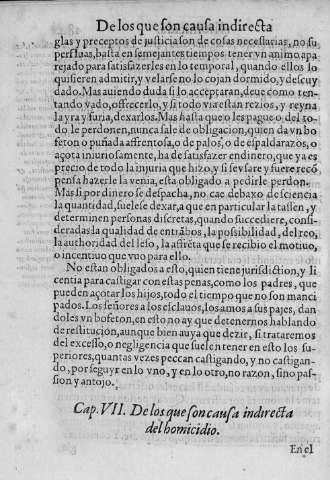 De los que son causa indirecta
glas y preceptos de justicia son de cosas necessarias, no su
perfluas, basta en semejantes tiempos tener vn animo apa
rejado para satisfazerles en lo temporal, quando ellos lo
quisieren admitir, y velarse no lo cojan dormido, y descuy
dado. Mas auiendo duda si lo acceptaran, deue como ten-
tando vado, offrecerlo, y si todo via estan rezios, y reyna
la yra y furia, dexarlos. Mas hasta que o les pague o del to-
do le perdonen, nunca sale de obligacion, quien da vn bo
feton o puñada affrentosa, o de palos, o de espaldarazos, o
açota injuriosamente, ha de satisfazer en dinero, que ya es
precio de todo la injuria que hizo, y si se vsare y fuere reco
pensa hazerle la venia, esta obligado a pedirle perdon.
Mas si por dinero se despacha, no cae debaxo de sciencia
la quantidad, suelese dexar, a que en particular la tassen, y
determinen personas discretas, quando succediere, consi-
deradas la qualidad de entrãbos, la possibilidad, del reo,
la authoridad del leso, la affrẽta que se recibio el motiuo,
o incentiuo que vuo para ello.
No estan obligados a esto, quien tiene jurisdiction, y li
cencia para castigar con estas penas, como los padres, que
pueden açotar los hijos, todo el tiempo que no son manci
pados. Los señores a los esclauos, los amos a sus pajes, dan
doles vn bofeton, en esto no ay que detenernos hablando
de restituciõ, aunque bien auya que dezir, si trataremos
del excesso, o negligencia que suelen tener en esto los su-
periores, quantas veces peccan castigando, y no castigan-
do, por seguyr en lo vno, y en lo otro, no razon, sino pas-
sion y antojo.
Cap. VII. De los que son causa indirecta
del homicidio.
En el